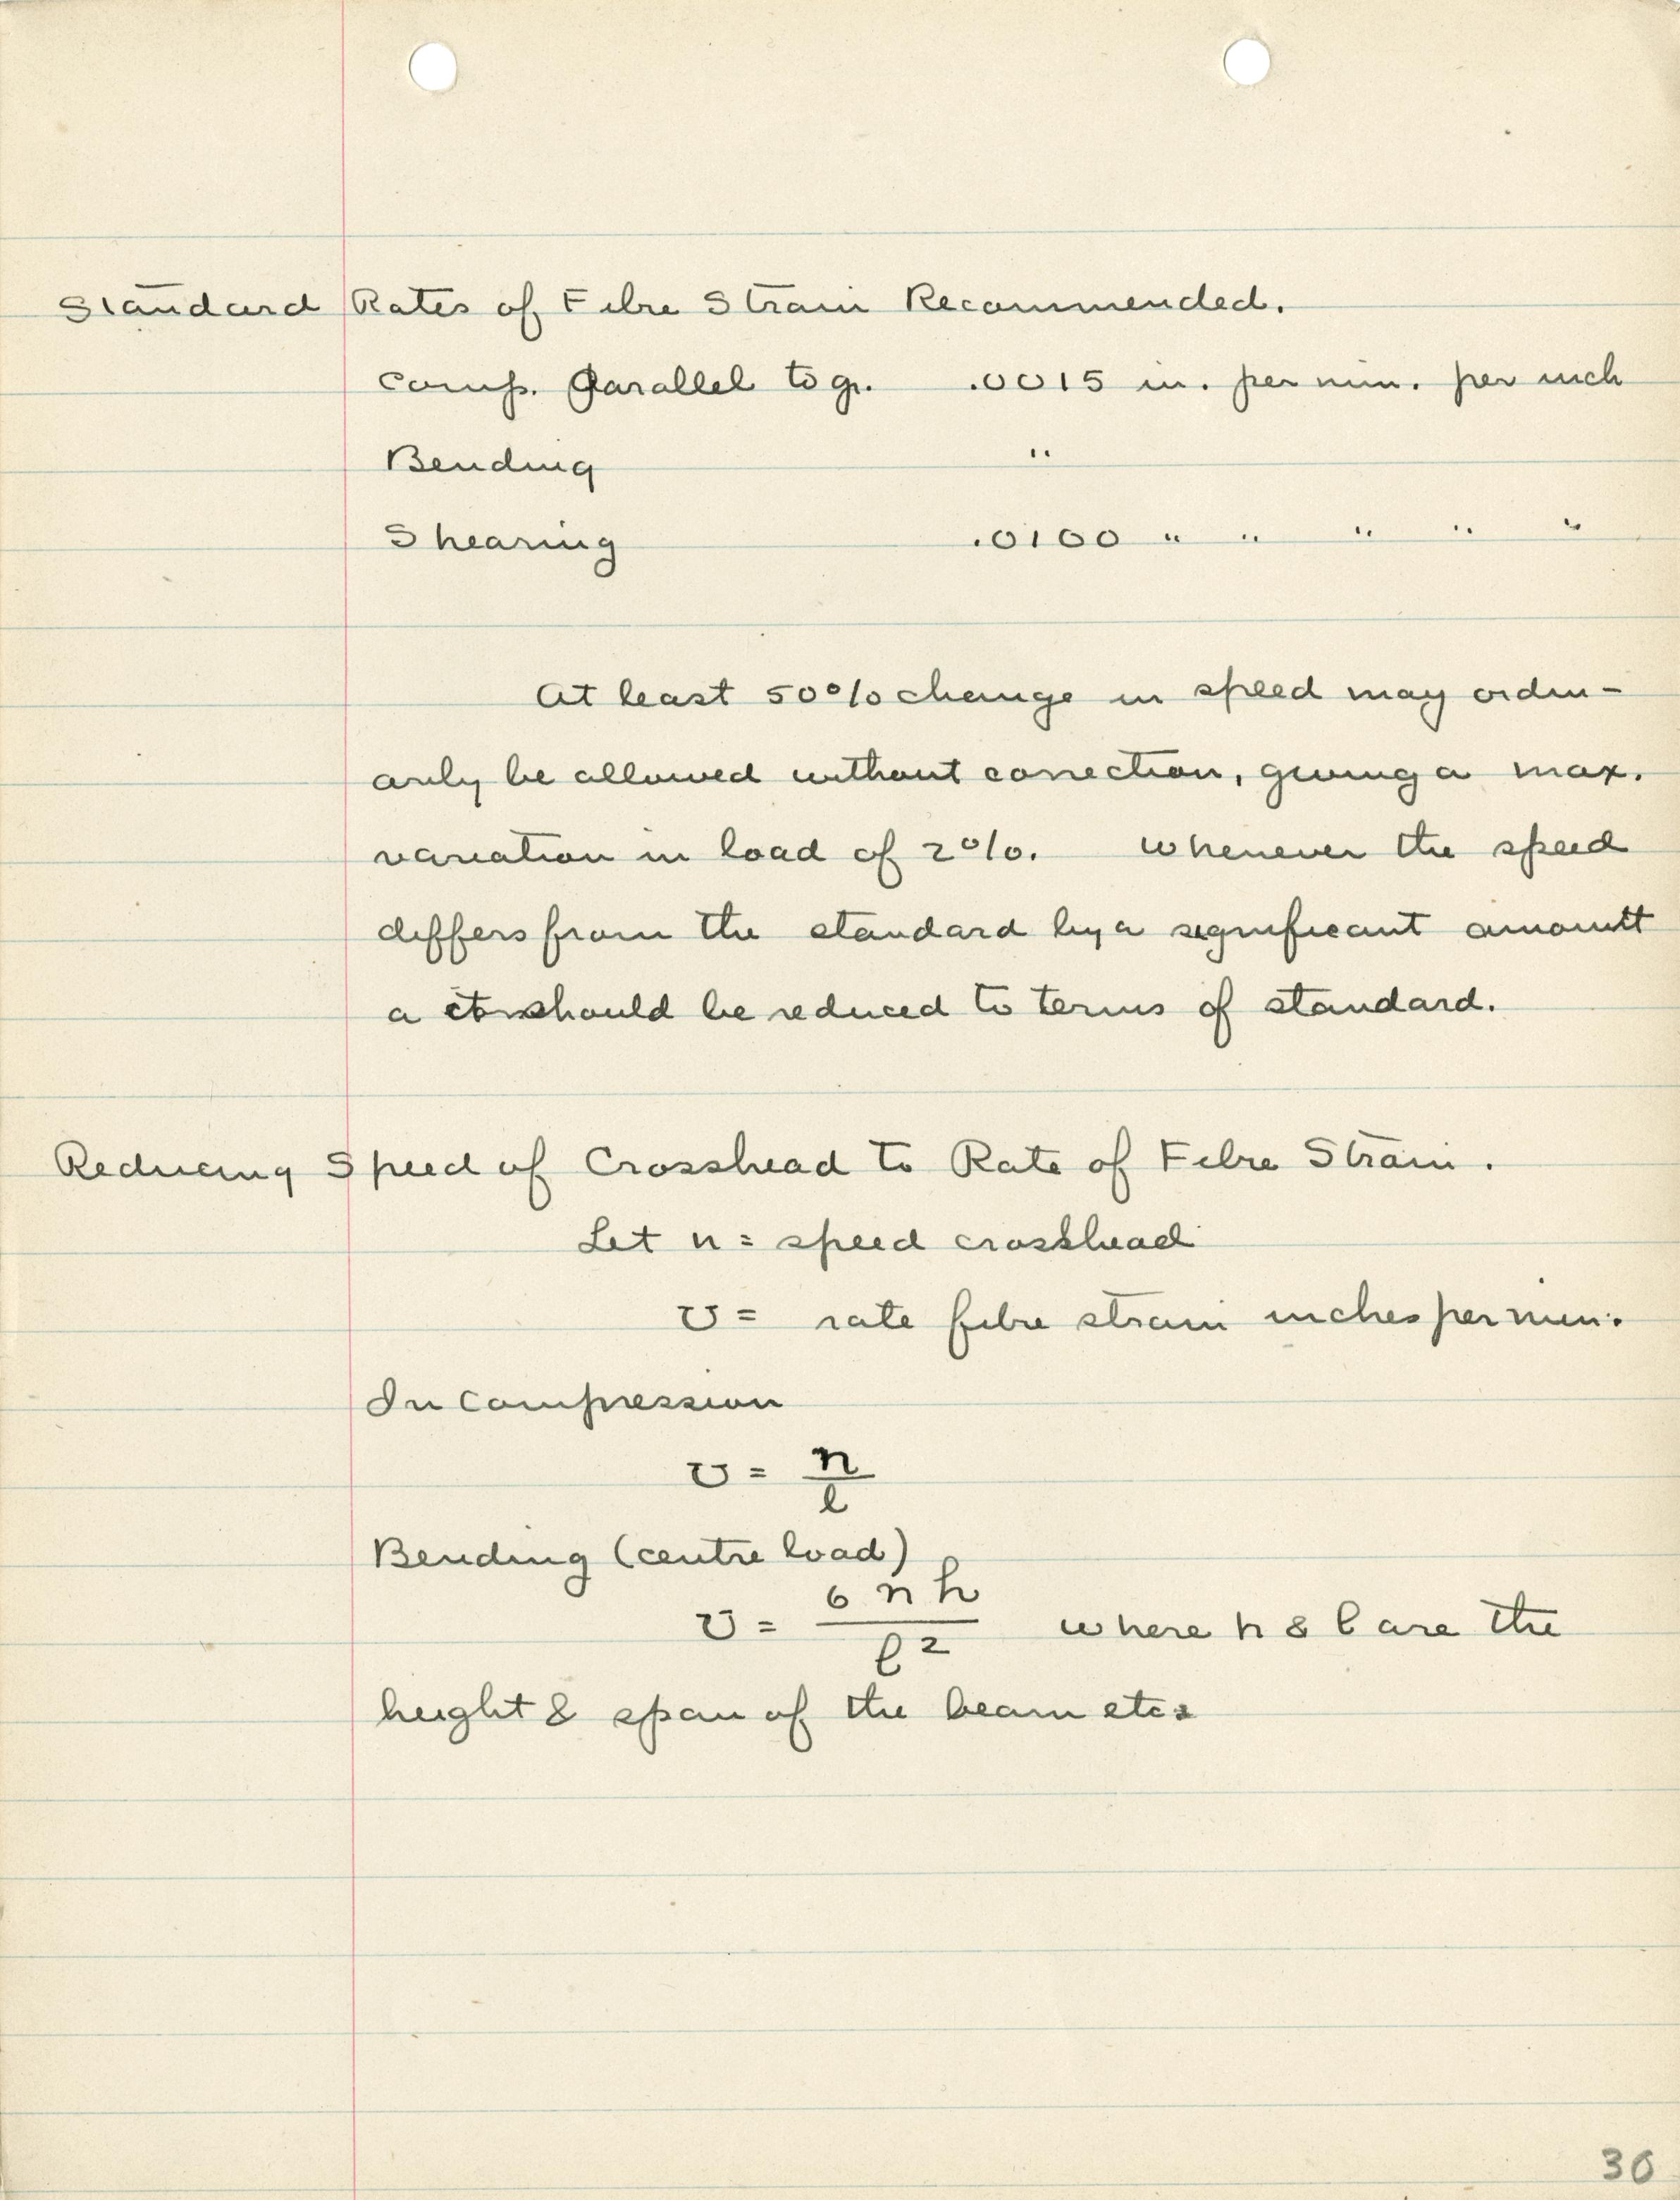 Standard Rates of Fibre Strain Recommended.
Comp. Parallel to gr. .0015 in. per min. per inch
Bending "
Shearing .0100 " " " " "
At least 50% change in speed may ordin-
arily be allowed without correction, giving a max.
variation in load of 2%. Whenever the speed
differs from the standard by a significant amount
a should be reduced to terms of standard.
Reducing Speed of Crosshead to Rate of Fibre Strain.
Let n = speed crosshead
v = rate fibre strain inches per min.
In Compression
v = n/l
Bending (centre load)
v = 6nh/l² where h & l are the
height & span of the beam etc.
36